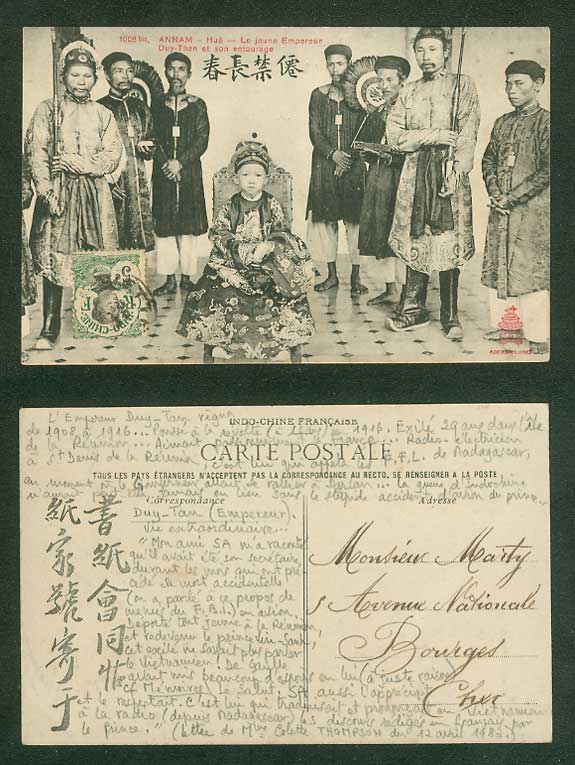 1008 bis, ANNAM - Hué - Le jeune Empereur
Duy-Than et son entourage
春長禁僊
5
R F
INDO-CHINE FRANÇAISE
L'Empereur Duy-Tan règna
de 1908 à 1916... Poussé à la révolte en 1916. Exilé 29 ans dans l'Île
de la Réunion... Aimant la France... Radio-électricien
à St Denis de la Réunion, c'est lui qui appela les F.F.L. de Madagascar,
CARTE POSTALE
TOUS LES PAYS ÉTRANGERS N'ACCEPTENT PAS LA CORRESPONDANCE AU RECTO. SE RENSEIGNER A LA POSTE
au moment où le Gouverneur allait se rallier à la guerre d'Indochine
n'aurait jamais eu lieu sans le stupide accident d'avion du prince
Correspondance
Adresse
Duy-Tan (Empereur).
Vie extraordinaire...
"Mon ami SA m'a raconté
qu'il avait été son secrétaire
durant les mois qui ont pré-
cédé la mort accidentelle
(on a parlé à ce propos de
menées du F.B.I.) en avion.
Déporté tout jeune à la Réunion,
et redevenu le prince Vinh-San,
cet exilé ne savait plus parler
le Vietnamien! De Gaulle
avait mis beaucoup d'espoir en lui (à juste raison)
cf Mémoires. Le Salut. SA aussi l'appréciait
et le respectait. C'est lui qui traduisait et prononçait en Vietnamien
à la radio (depuis Madagascar) les discours rédigés en français par
le Prince."
(lettre de Mme Colette THOMPSON du 12 avril 1983.)
書紙會同
紙家號寄于
Monsieur Marty
5 Avenue Nationale
Bourges
Cher